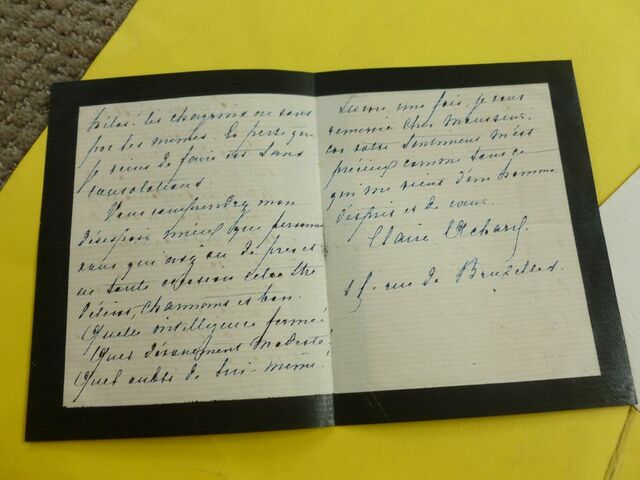 hélas! les chagrins ne sont
pas les mêmes. La perte que
je viens de faire est sans
consolations.
Vous comprendrez mon
désespoir mieux que personne
vous qui avez vu de près et
en toute occasion cet être
délicat, charmant et bon.
Quelle intelligence ferme!
Quel dévouement modeste!
Quel oubli de lui-même!
Encore une fois je vous
remercie cher Monsieur,
car votre sentiment m'est
précieux comme tout ce
qui me vient d'un homme
d'esprit et de cœur.
Claire Achard.
rue de Bruxelles.